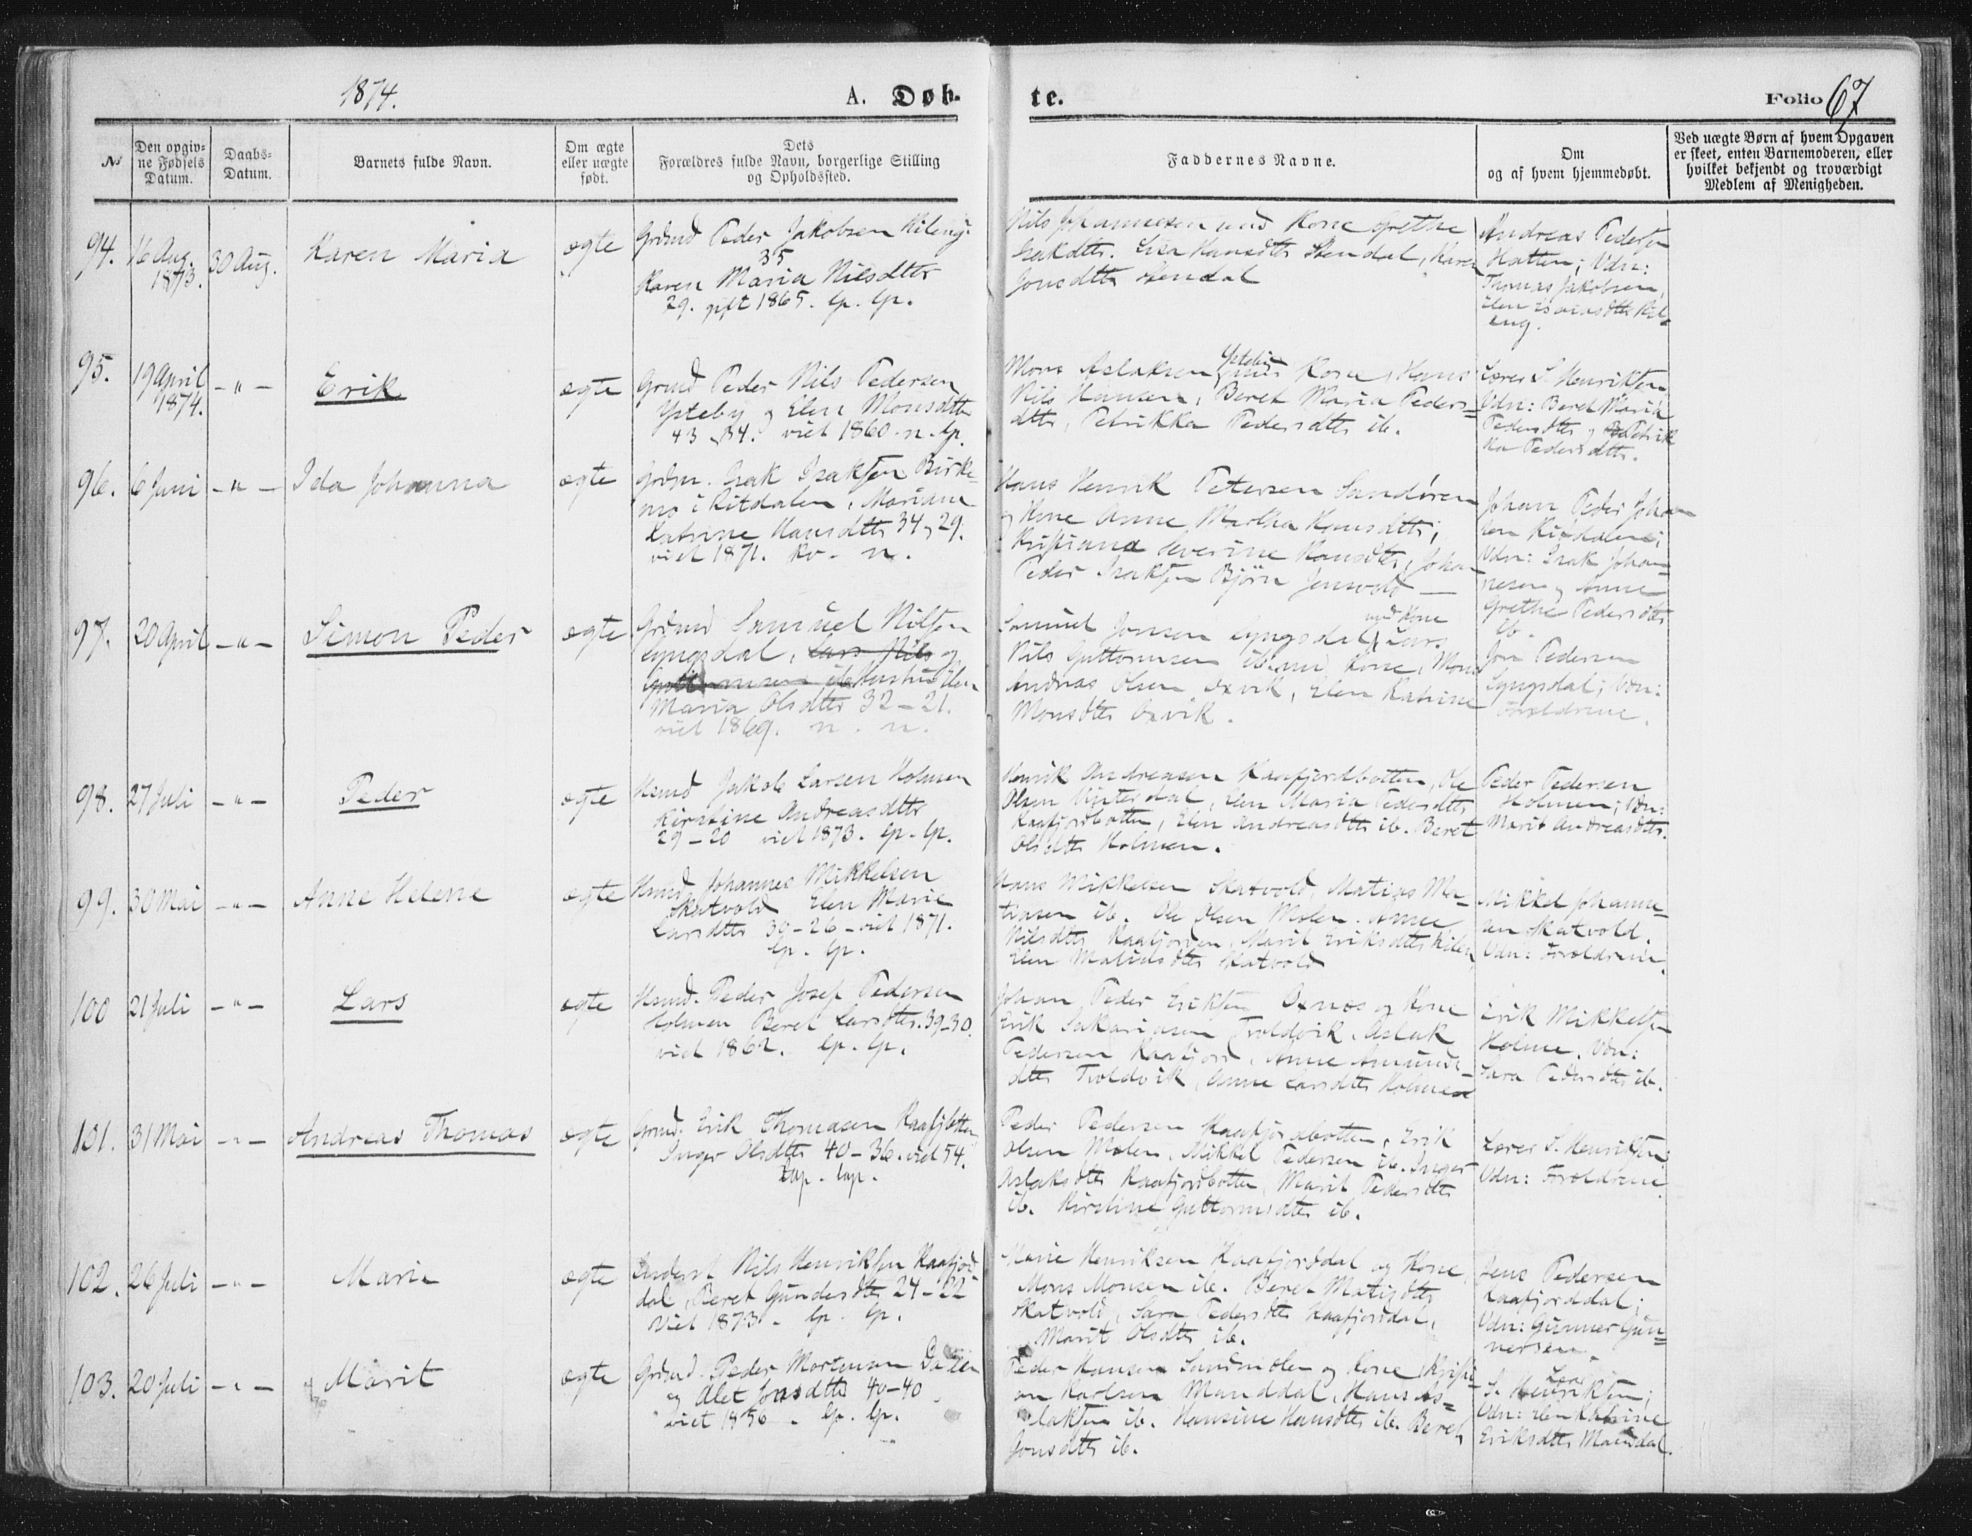 1874.
A. Døb-
te.
Folio 67
No
Den opgiv-
ne Fødsels
Datum.
Daabs-
Datum.
Barnets fulde Navn.
Om ægte
eller uægte
født.
Dets
Forældres fulde Navn, borgerlige Stilling
og Opholdssted.
Faddernes Navne.
Om
og af hvem hjemmedøbt.
Ved uægte Børn af hvem Opgaven
er skeet, enten Barnemoderen, eller
hvilket bekjendt og troværdigt
Medlem af Menigheden.
94.
16 Aug.
1873.
30 Aug.
Karen Maria
ægte
Grdmd Peder Jakobsen Kileng.
35
Karen Maria Nilsdtr
29. gift 1865. lp. lp.
Nils Johannesen med Kone Grethe
Isakdtr. Lisa Hansdtr Stendal, Karen
Jonsdtr Stendal
Andreas Peders
Hatten; Vdn:
Thomas Jakobsen,
eng.
95.
19 April
1874.
-"-
Erik
ægte
Grmd Peder Nils Pedersen
Ysteby og Elen Monsdtr
43-34. viet 1860. n. lp.
Mons Aslaksen Ysteby med Kone, Hans
Nils Hansen, Beret Maria Peders=
dtr, Petrikka Pedersdtr ib.
Lærer S. Henriksen
Vdn: Beret Maria
Pedersdtr og Petrik
ka Pedersdtr.
96.
6 Juni
-"-
Ida Johanna
ægte
Grdm. Isak Isaksen Birke-
mo i Kitdalen, Mariana
Katrine Hansdtr 34, 29.
viet 1871. kv. n.
Hans Henrik Petersen Sandøren
og Kone Anne Martha Hansdtr;
Kristiana Severine Hansdtr, Johan
Peder Isaksen Bjørn Jensvold
Johan Peder Johan
sen Kitdalen;
Vdn: Isak Johan=
nesen og Anne
Grethe Pedersdtr
ib.
97.
20 April
-"-
Simon Peder
ægte
Grdmd Samuel Nilsen
Lyngsdal, Lars Nils og
Hustru Elen
Maria Olsdtr 32-21.
viet 1869. n. n.
med Kone
Samuel Jonsen Lyngsdal, Lars
Nils Guttormsen ib. md Kone, Mons
Andreas Olsen Oxvik, Elen Katrine
Monsdtr Oxvik.
Jon Pedersen
Lyngsdal; Vdn:
Forældrene.
98.
27 Juli
-"-
Peder
ægte
Hsmd Jakob Larsen Holmen
Kirstine Andreasdtr
29-20 viet 1873. lp. lp.
Henrik Andreasen Kaafjordbotten, Ole
Olsen Vinterdal, Elen Maria Pedersdtr
Kaafjordbotten, Elen Andreasdtr ib. Beret
Olsdtr Holmen.
Peder Pedersen
Holmen; Vdn:
Marit Andreasdtr.
99.
30 Mai
-"-
Anne Helene
ægte
Hsmd Johannes Mikkelsen
Skatvold Elen Marie
Larsdtr 39-26-viet 1871.
lp. lp.
Hans Mikkelsen Skatvold, Matias Ma-
tiasen ib. Ole Olsen Molen. Anne
Nilsdtr Kaafjorden, Marit Eriksdtr
Elen Matiasdtr Skatvold
Mikkel Johanne-
sen Skatvold.
Vdn: Forældrene.
100
21 Juli
-"-
Lars
ægte
Hsmd. Peder Josef Pedersen
Holmen Beret Larsdtr. 39-30.
viet 1862. lp. lp.
Johan Peder Eriksen Oxnæs og Kone
Erik Sakariasen Troldvik, Aslak
Pedersen Kaafjord, Anne Amunds-
dtr Troldvik, Anne Larsdtr Holmen
Erik Mikkels-
Holme. Vdn:
Sara Pedersdtr ib.
101.
31 Mai
-"-
Andreas Thomas
ægte
Grmd. Erik Thomasen Kaafjbotten
Inger Olsdtr 40-36. viet 54.
lap. lap.
Peder Pedersen Kaafjordbotten, Erik
Olsen Molen, Mikkel Pedersen ib. Inger
Aslaksdtr Kaafjordbotten, Marit Pedersdtr
ib. Kirstine Guttormsdtr ib.
Lærer S. Henriksen;
Vdn: Forældrene
102.
26 Juli
-"-
Marie
ægte
Inderst Nils Henriksen Kaafjord
dal, Beret Gundersdtr 24-22
Viet 1873. lp. lp.
Henriksen Kaafjorddal og Kone,
Mons Monsen ib. Beret Matisdtr
Skatvold, Sara Pedersdtr Kaafjorddal,
Marit Olsdtr ib.
Jens Pedersen
Kaafjorddal;
Vdn: Gunner Gun=
nersen.
103.
20 Juli
-"-
Marit
ægte
Grdmd. Peder Mortensen Dalen
og Alet Jonsdtr 40-40
viet 1856. lp. lp.
Peder Hansen Sandmolen og Kone, Kristi
an Karlsen Manddal, Hans As=
laksen ib. Hansine Hansdtr ib. Beret
Jonsdtr ib.
S. Henriksen;
Vdn: Elen Katrine
Eriksdtr Manddal.